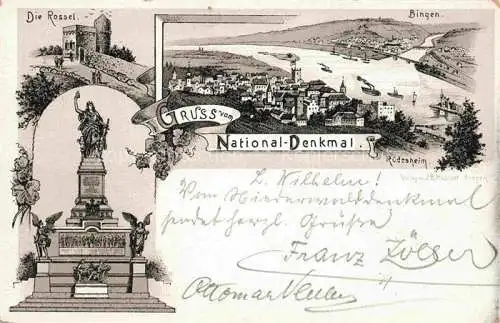 Die Rossel.
Bingen.
Gruss vom
National-Denkmal.
Rüdesheim
L. Wilhelm!
Vom Niederwalddenkmal
sendet herzl. Grüße
Franz
Ottomar